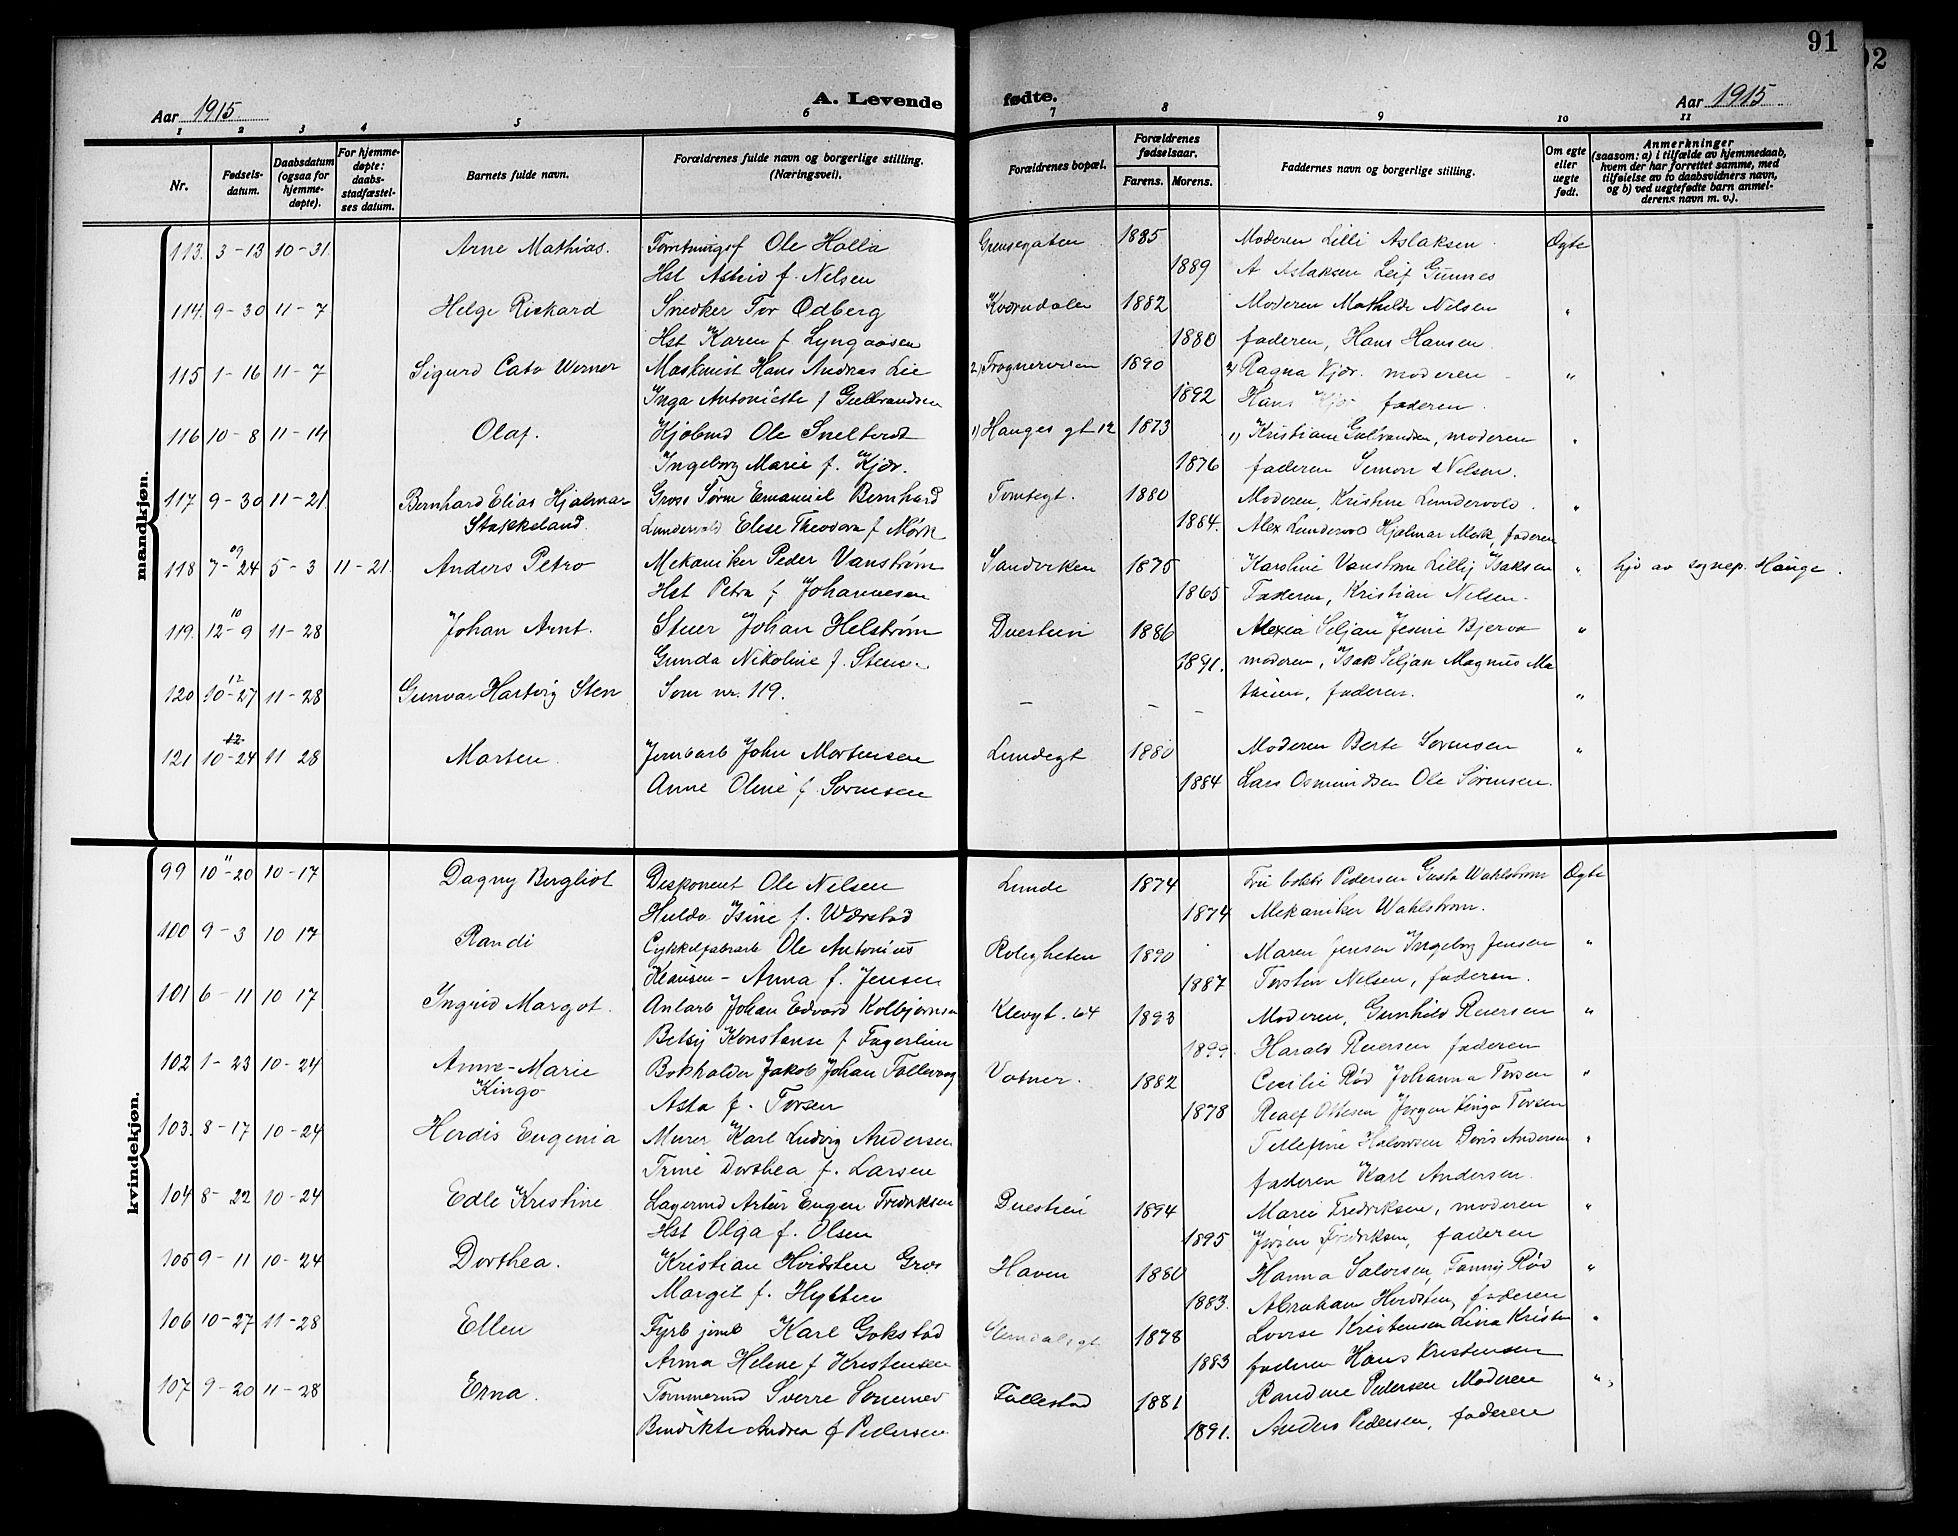 91
92
Aar 1915.
A. Levende fødte.
Aar 1915
1 2 3 4 5 6 7 8 9 10 11
Nr.
Fødsels-
datum.
Daabsdatum
(ogsaa for
hjemme-
døpte).
For hjemme-
døpte:
daabs-
stadfæstel-
ses datum.
Barnets fulde navn.
Forældrenes fulde navn og borgerlige stilling.
(Næringsvei).
Forældrenes bopæl.
Forældrenes
fødselsaar.
Farens. Morens.
Faddernes navn og borgerlige stilling.
Om egte
eller
uegte
født.
Anmerkninger
(saasom: a) i tilfælde av hjemmedaab,
hvem der har forrettet samme, med
tilføielse av to daabsvidners navn,
og b) ved uegtefødte barn anmel-
derens navn m. v.).
mandkjøn.
113. 3-13 10-31 Arne Mathias. Ole Holla Grensegaten 1885 Moderen Lilli Aslaksen Ogte
Hst Astrid f. Nelsen 1889 A Aslaksen Leif Gunnes
114. 9-30 11-7 Helge Rickard Snedker Tor Ødberg 1882 Moderen Mathilde Nelsen "
Hst Karen f Lyngaasen 1880 faderen, Hans Hansen.
115 1-16 11-7 Sigurd Cato Werner Maskinist Hans Andreas Lie 2) Trognerveien 1890 2) Ragna Kjær. moderen "
Inga Antoniette f Gulbrandsen 1892 Hans Kjær faderen.
116 10-8 11-14 Olaf. Kjøbmd Ole 1) Hauges gt 12 1873 1) Kristiane Gulbrandsen, moderen "
Ingeborg Marie f. Kjær. 1876 faderen Nelsen.
117 9-30 11-21. Bernhard Elias Hjalmar Gross Sørin Emanuel Bernhard Tomtegt. 1880 Moderen, Kristine Lundervold. "
Stakkeland. Lundervold Elise Theodora f Mørk 1884. Alex Lundervold Hjalmar Mørk, faderen
09
118 7-24 5-3 11-21. Anders Petro Mekaniker Peder Vanstrøm Sandviken 1875 Karoline Vanstrøm Lilly Isaksen " hjd av sognep. Hauge.
Hst Petra f Johannesen 1865 Faderen, Kristian Nelsen.
10
119. 12-9 11-28 Johan Arnt. Stuer Johan Helstrøm Duestien 1886 Alexia Seljan Jesine Bjerva "
Gunda Nikoline f. Steen. 1891. moderen, Isak Seljan Magnus Ma
12
120 10-27 11-28 Gunvar Hartvig Sten Som nr. 119. - - - faderen. "
12
121 10-24 11 28 Morten. Jernbarb John Mortensen Lundegt 1880 Moderen Berte Sørensen "
Anne Oline f. Sørensen 1884 Lars Osmundsen Ole Sørensen.
kvindekjøn.
11
99 10-20 10-17 Dagny Bergliot Disponent Ole Nelsen Lunde 1874 Fru Pedersen Gusta Wahlstrøm Ogte
Hulda Isine f. Wærstad 1874 Mekaniker Wahlstrøm.
100 9-3 10 17 Randi Cykkelfabrarb Ole Antonius Roligheten 1890 Maren Jensen Ingeborg Jensen "
Klausen - Anna f. Jensen 1887 Torsten Nelsen, faderen.
101 6-11 10 17 Ingrid Margot. Anlarb Johan Edvard Kolbjørnsen Klevgt. 64 1893 Moderen, Gunhild Reiersen "
Betsy Konstanse f Fagerlien 1899. Harald Reiersen faderen
102 1-23 10-24 Anne-Marie Bokholder Jakob Johan Follevaag 1882 Cecilie Rød Johanna Torsen "
Kingo Asta f. Torsen 1878 Realf Ottesen Jørgen Kingo Torsen
103. 8-17 10-24 Herdis Eugenia Murer Karl Ludvig Andersen Tellefine Halvorsen Doris Andersen "
Trine Dorthea f. Larsen faderen Karl Andersen.
104 8-22 10-24 Edle Kristine Lagermd Artur Eugen Fredriksen Duestien 1894 Marie Fredriksen, moderen "
Hst Olga f. Olsen 1895 Fredriksen, faderen
105 9-11 10-24 Dorthea. Kristian Hvidsten Gros Haven 1880 Hanna Salvesen, Fanny Rød "
Margit f. Hytten 1883. Abraham Hvidsten, faderen
106 10-27 11-28 Ellen Fyrb jernb Karl Gokstad 1878 Lovise Kristensen Lina Kristen "
Anna Helene f Kristensen 1883 faderen Hans Kristensen
107 9-20 11-28 Erna. Tømmermd Sverre Follestad 1881 Randine Pedersen Moderen "
Bendikte Andrea f Pedersen 1891. Anders Pedersen, faderen